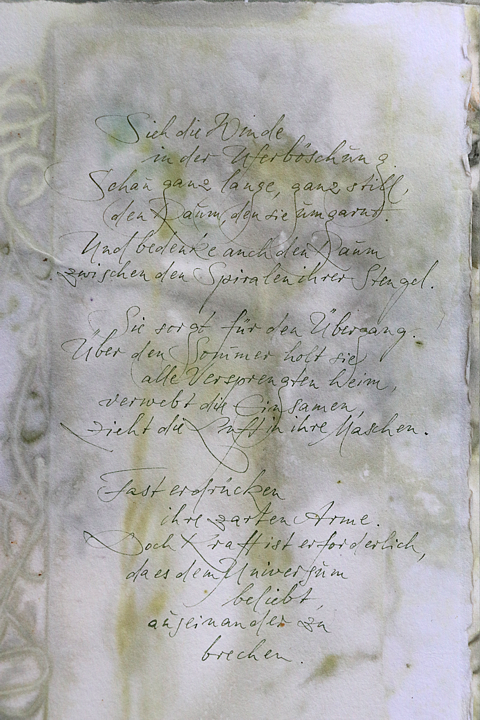 Sieh die Winde
in der Uferböschung.
Schau ganz lange, ganz still,
den Raum, den sie umgarnt.
Und bedenke auch den Raum
zwischen den Spiralen ihrer Stengel.
Sie sorgt für den Übergang.
Über den Sommer holt sie
alle Versprengten heim,
verwebt die Einsamen,
zieht die Luft in ihre Maschen.
Fast erdrücken
ihre zarten Arme.
Doch Kraft ist erforderlich,
da es dem Universum
beliebt,
auseinander zu
brechen.